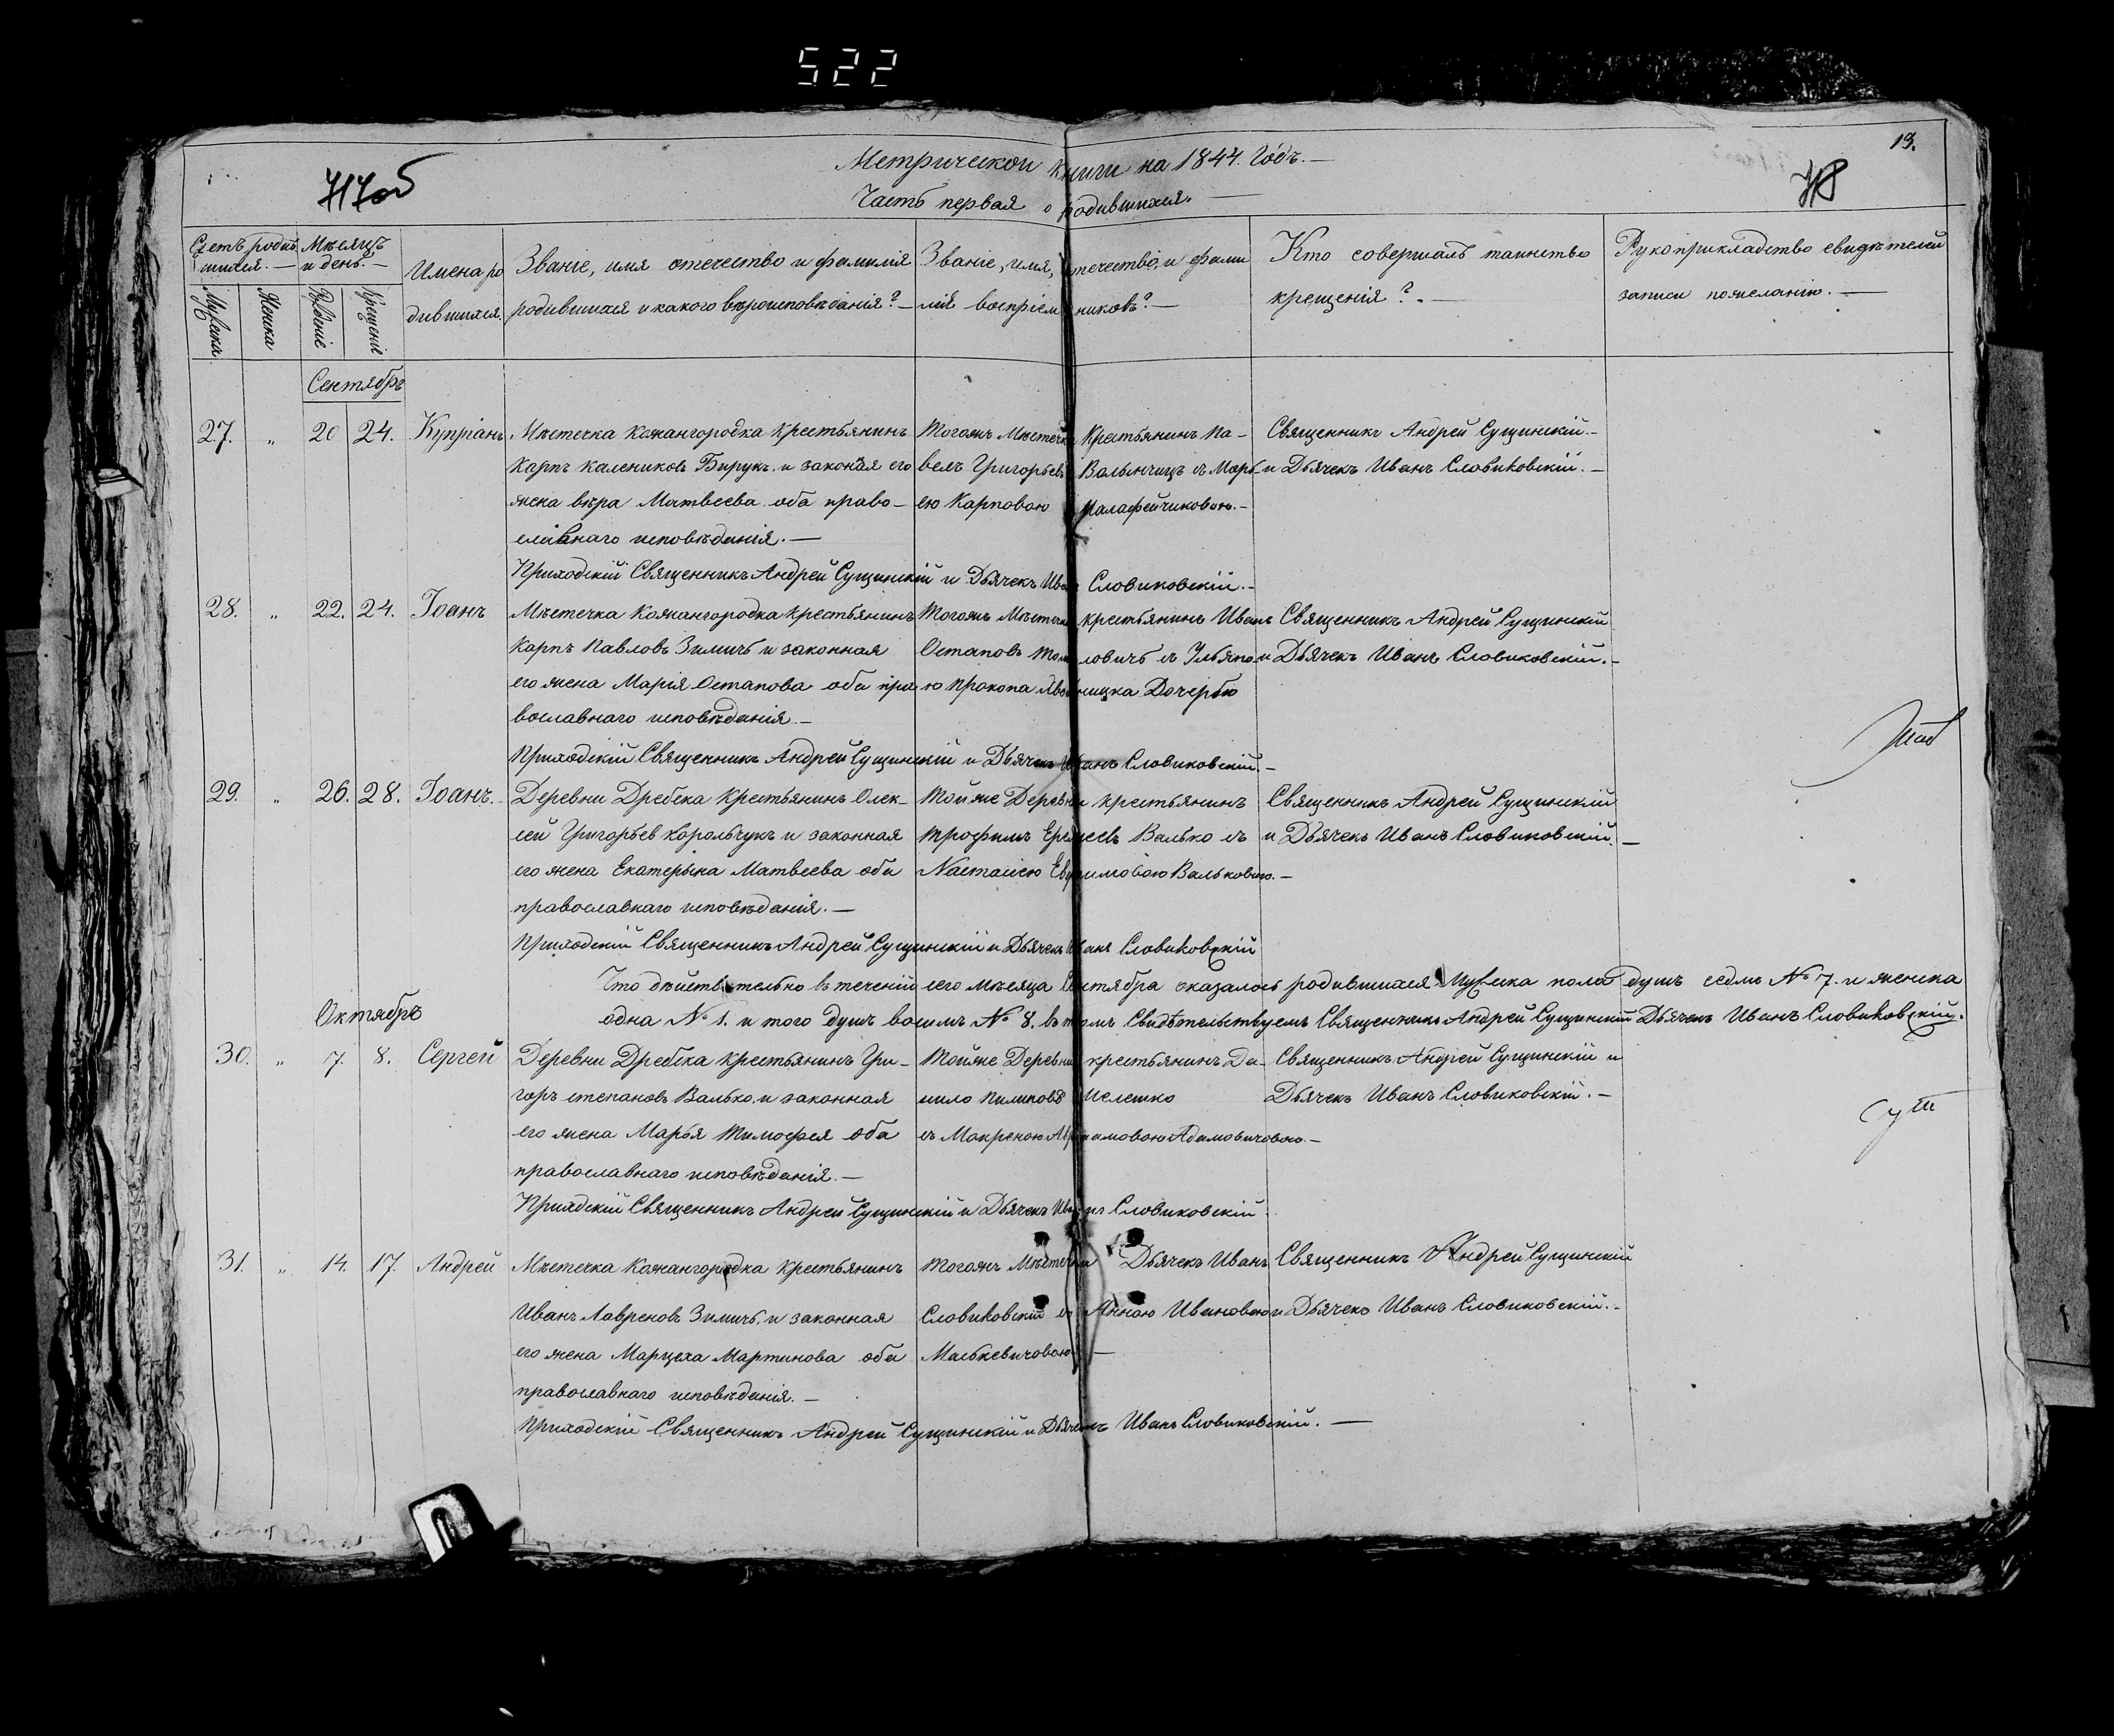 522
Метрической книги на 1844. Годъ.—
19.
717об
Часть первая о родившихся.—
Счетъ родив шихся.—
Мѣсяцъ и день.—
Имена ро дившихся.
Званіе, имя отечество и фамилія родившихся и какого вѣроисповѣданія?—
Званіе, имя, отечество, и фами лія воспріем никовъ?—
Кто совершалъ таинство крещенія?.—
Рукоприкладство свидѣтелей записи пожеланію.—
Мужска
Женска
Рожденіе
Крещеніе
Сентябрь
27. „ 20 24. Купріанъ
Мѣстечка Кожангородка Крестьянинъ
Карпъ Калениковъ Бирукъ. и законая его
жена вѣра Матвеева оба право-
славнаго исповѣданія.—
Тогожъ Мѣстечка Крестьянинъ Па-
велъ Григорьевъ Валынчицъ съ Марь
ею Карповою Малафейчиковою.—
Священникъ Андрей Сущинскій.-
и Дьячекъ Иванъ Словиковскій.—
Приходскій Священникъ Андрей Сущинскій и Дьячекъ Иванъ Словиковскій.-
28. „ 22. 24. Іоанъ
Мѣстечка Кожангородка Крестьянинъ
Карпъ Павловъ Зимичъ и законная
его жена Марія Остапова оба пра
вославнаго исповѣданія.—
Тогожъ Мѣстечка крестьянинъ Иванъ
Остаповъ ловичъ съ Ульяно
ю Прокопа Дочерью
Священникъ Андрей Сущинскій
и Дьячекъ Иванъ Словиковскій.-
Приходскій Священникъ Андрей Сущинскій и Дьячекъ Иванъ Словиковскій.—
29. „ 26. 28. Іоанъ.
Деревни Дребска крестьянинъ Олек-
сей Григорьев Корольчукъ и законная
его жена Екатерына Матвеева оба
православнаго исповѣданія.—
Тойже Деревни крестьянинъ
Трофимъ Валько съ
Настасіею Евфимовою Вальковою.—
Священникъ Андрей Сущинскій
и Дьячекъ Иванъ Словиковскій.—
Приходскій Священникъ Андрей Сущинскій и Дьячекъ Иванъ Словиковскій
Что дѣйствительно въ теченіи сего мѣсяца Сентября оказалось родившихся Мужска пола душъ седмь №7. и женска
одна №1. и того душъ восимъ №8. въ томъ Свидѣтельствуемъ Священникъ Андрей Сущинскій Дьячекъ Иванъ Словиковскій.
Октябрь
30. „ 7. 8. Сергей
Деревни Дребска крестьянинъ Гри-
горъ степановъ Валько. и законная
его жена Марья Тимофея оба
православнаго исповѣданія.—
Тойже Деревни крестьянинъ Да-
нило Пилиповъ Мелешко
съ Макреною Адамовичовою.—
Священникъ Андрей Сущинскій и
Дьячекъ Иванъ Словиковскій.—
Прихдскій Священникъ Андрей Сущинскій и Дьячекъ Иванъ Словиковскій.
31. „ 14. 17. Андрей
Мѣстечка Кожангородка крестьянинъ
Иванъ Лавреновъ Зимичъ. и законная
его жена Марцеха Мартинова оба
православнаго исповѣданія.—
Тогожъ Мѣстечка Дьячекъ Иванъ
Словиковскій со Анною Ивановою
Маськевичовою.—
Священникъ Андрей Сущинскій
и Дьячекъ Иванъ Словиковскій.-
Приходскій Священникъ Андрей Сущинскій и Дьячекъ Иванъ Словиковскій.—